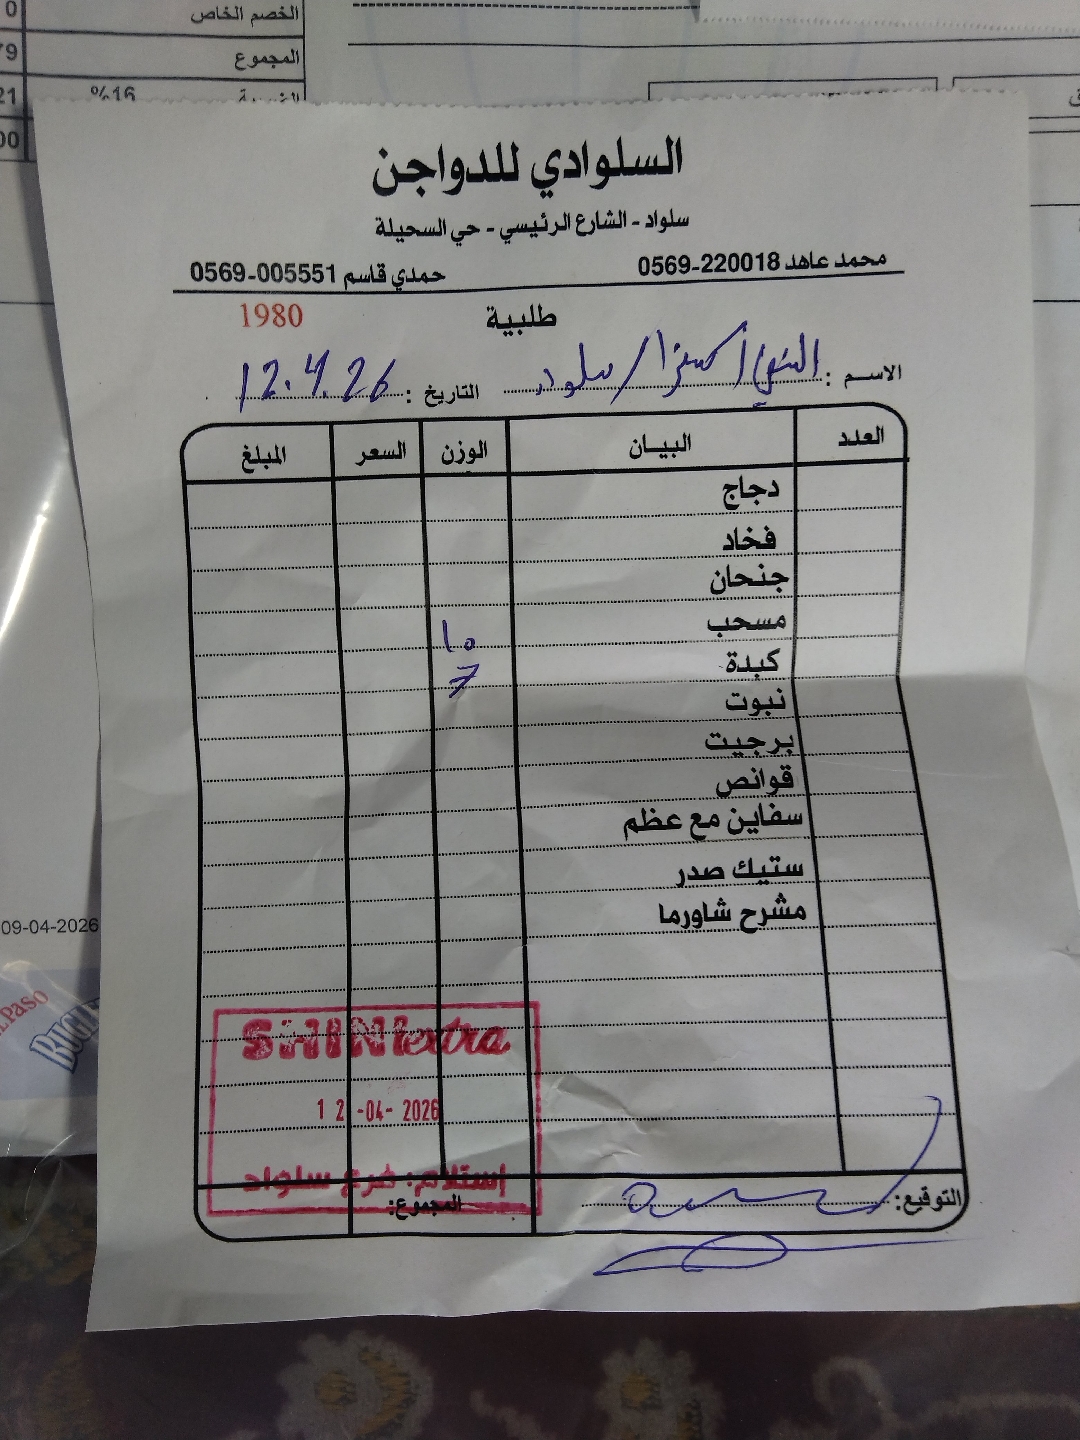 0 الخصم الخاص
79 المجموع
21 %16 الضريبة
00
السلوادي للدواجن
سلواد - الشارع الرئيسي - حي السحيلة
محمد عاهد 220018-0569 حمدي قاسم 005551-0569
طلبية 1980
الاسم : الشني اكسترا / سلواد التاريخ : 12.4.26
العدد البيان الوزن السعر المبلغ
دجاج
فخاد
جنحان
مسحب 10
كبدة 7
نبوت
برجيت
قوانص
سفاين مع عظم
ستيك صدر
مشرح شاورما
09-04-2026
SHINI extra
12-04-2026
إستلام: فرع سلواد
التوقيع: المجموع: